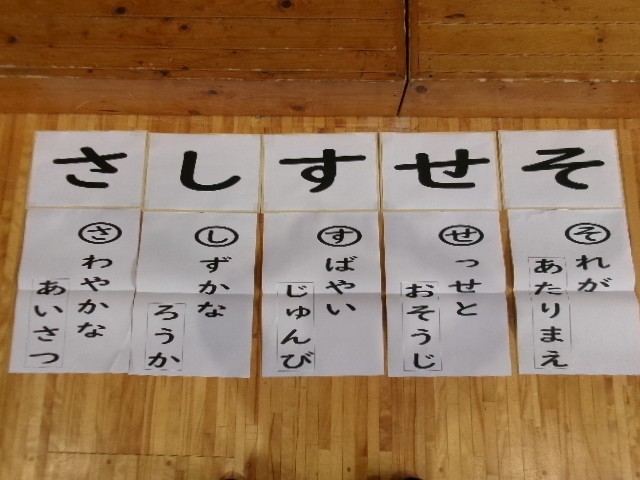 さ
し
す
せ
そ
さわやかな
あいさつ
しずかな
ろうか
すばやい
じゅんび
せっせと
おそうじ
それが
あたりまえ